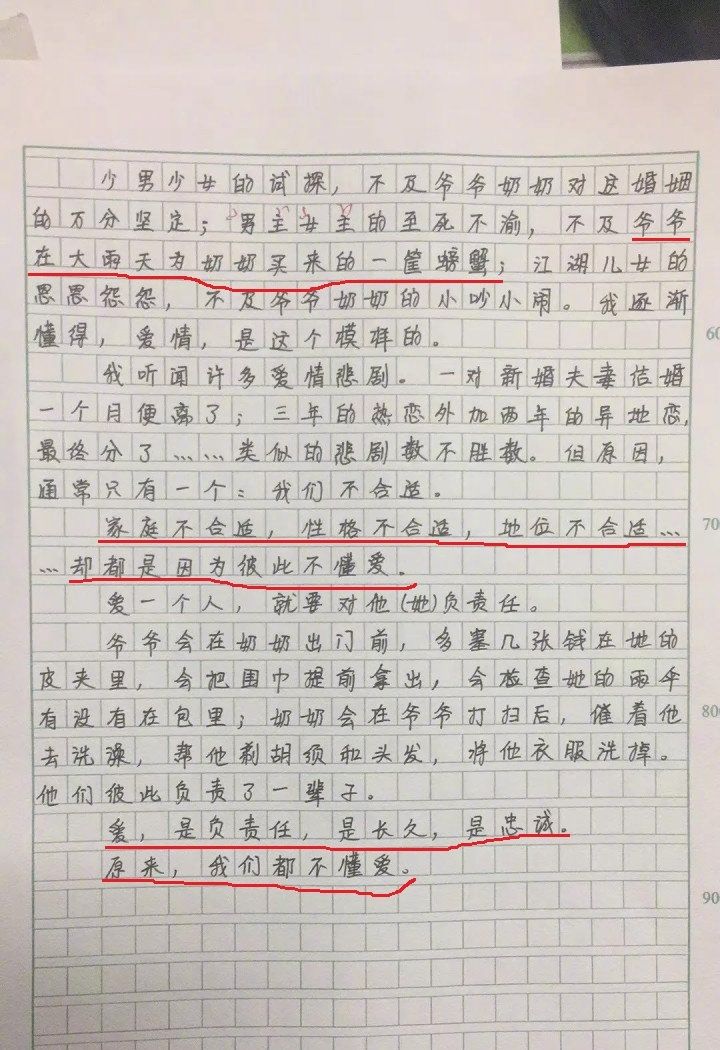 少男少女的试探，不及爷爷奶奶对这婚姻
的万分坚定；男主女主的至死不渝，不及爷爷
在大雨天为奶奶买来的一筐螃蟹；江湖儿女的
恩恩怨怨，不及爷爷奶奶的小吵小闹。我逐渐
懂得，爱情，是这个模样的。
我听闻许多爱情悲剧。一对新婚夫妻结婚
一个月便离了；三年的热恋外加两年的异地恋，
最终分了……类似的悲剧数不胜数。但原因，
通常只有一个：我们不合适。
家庭不合适，性格不合适，地位不合适…
…却都是因为彼此不懂爱。
爱一个人，就要对他(她)负责任。
爷爷会在奶奶出门前，多塞几张钱在她的
皮夹里，会把围巾提前拿出，会检查她的雨伞
有没有在包里；奶奶会在爷爷打扫后，催着他
去洗澡，帮他剃胡须和头发，将他衣服洗掉。
他们彼此负责了一辈子。
爱，是负责任，是长久，是忠诚。
原来，我们都不懂爱。
60
70
80
90